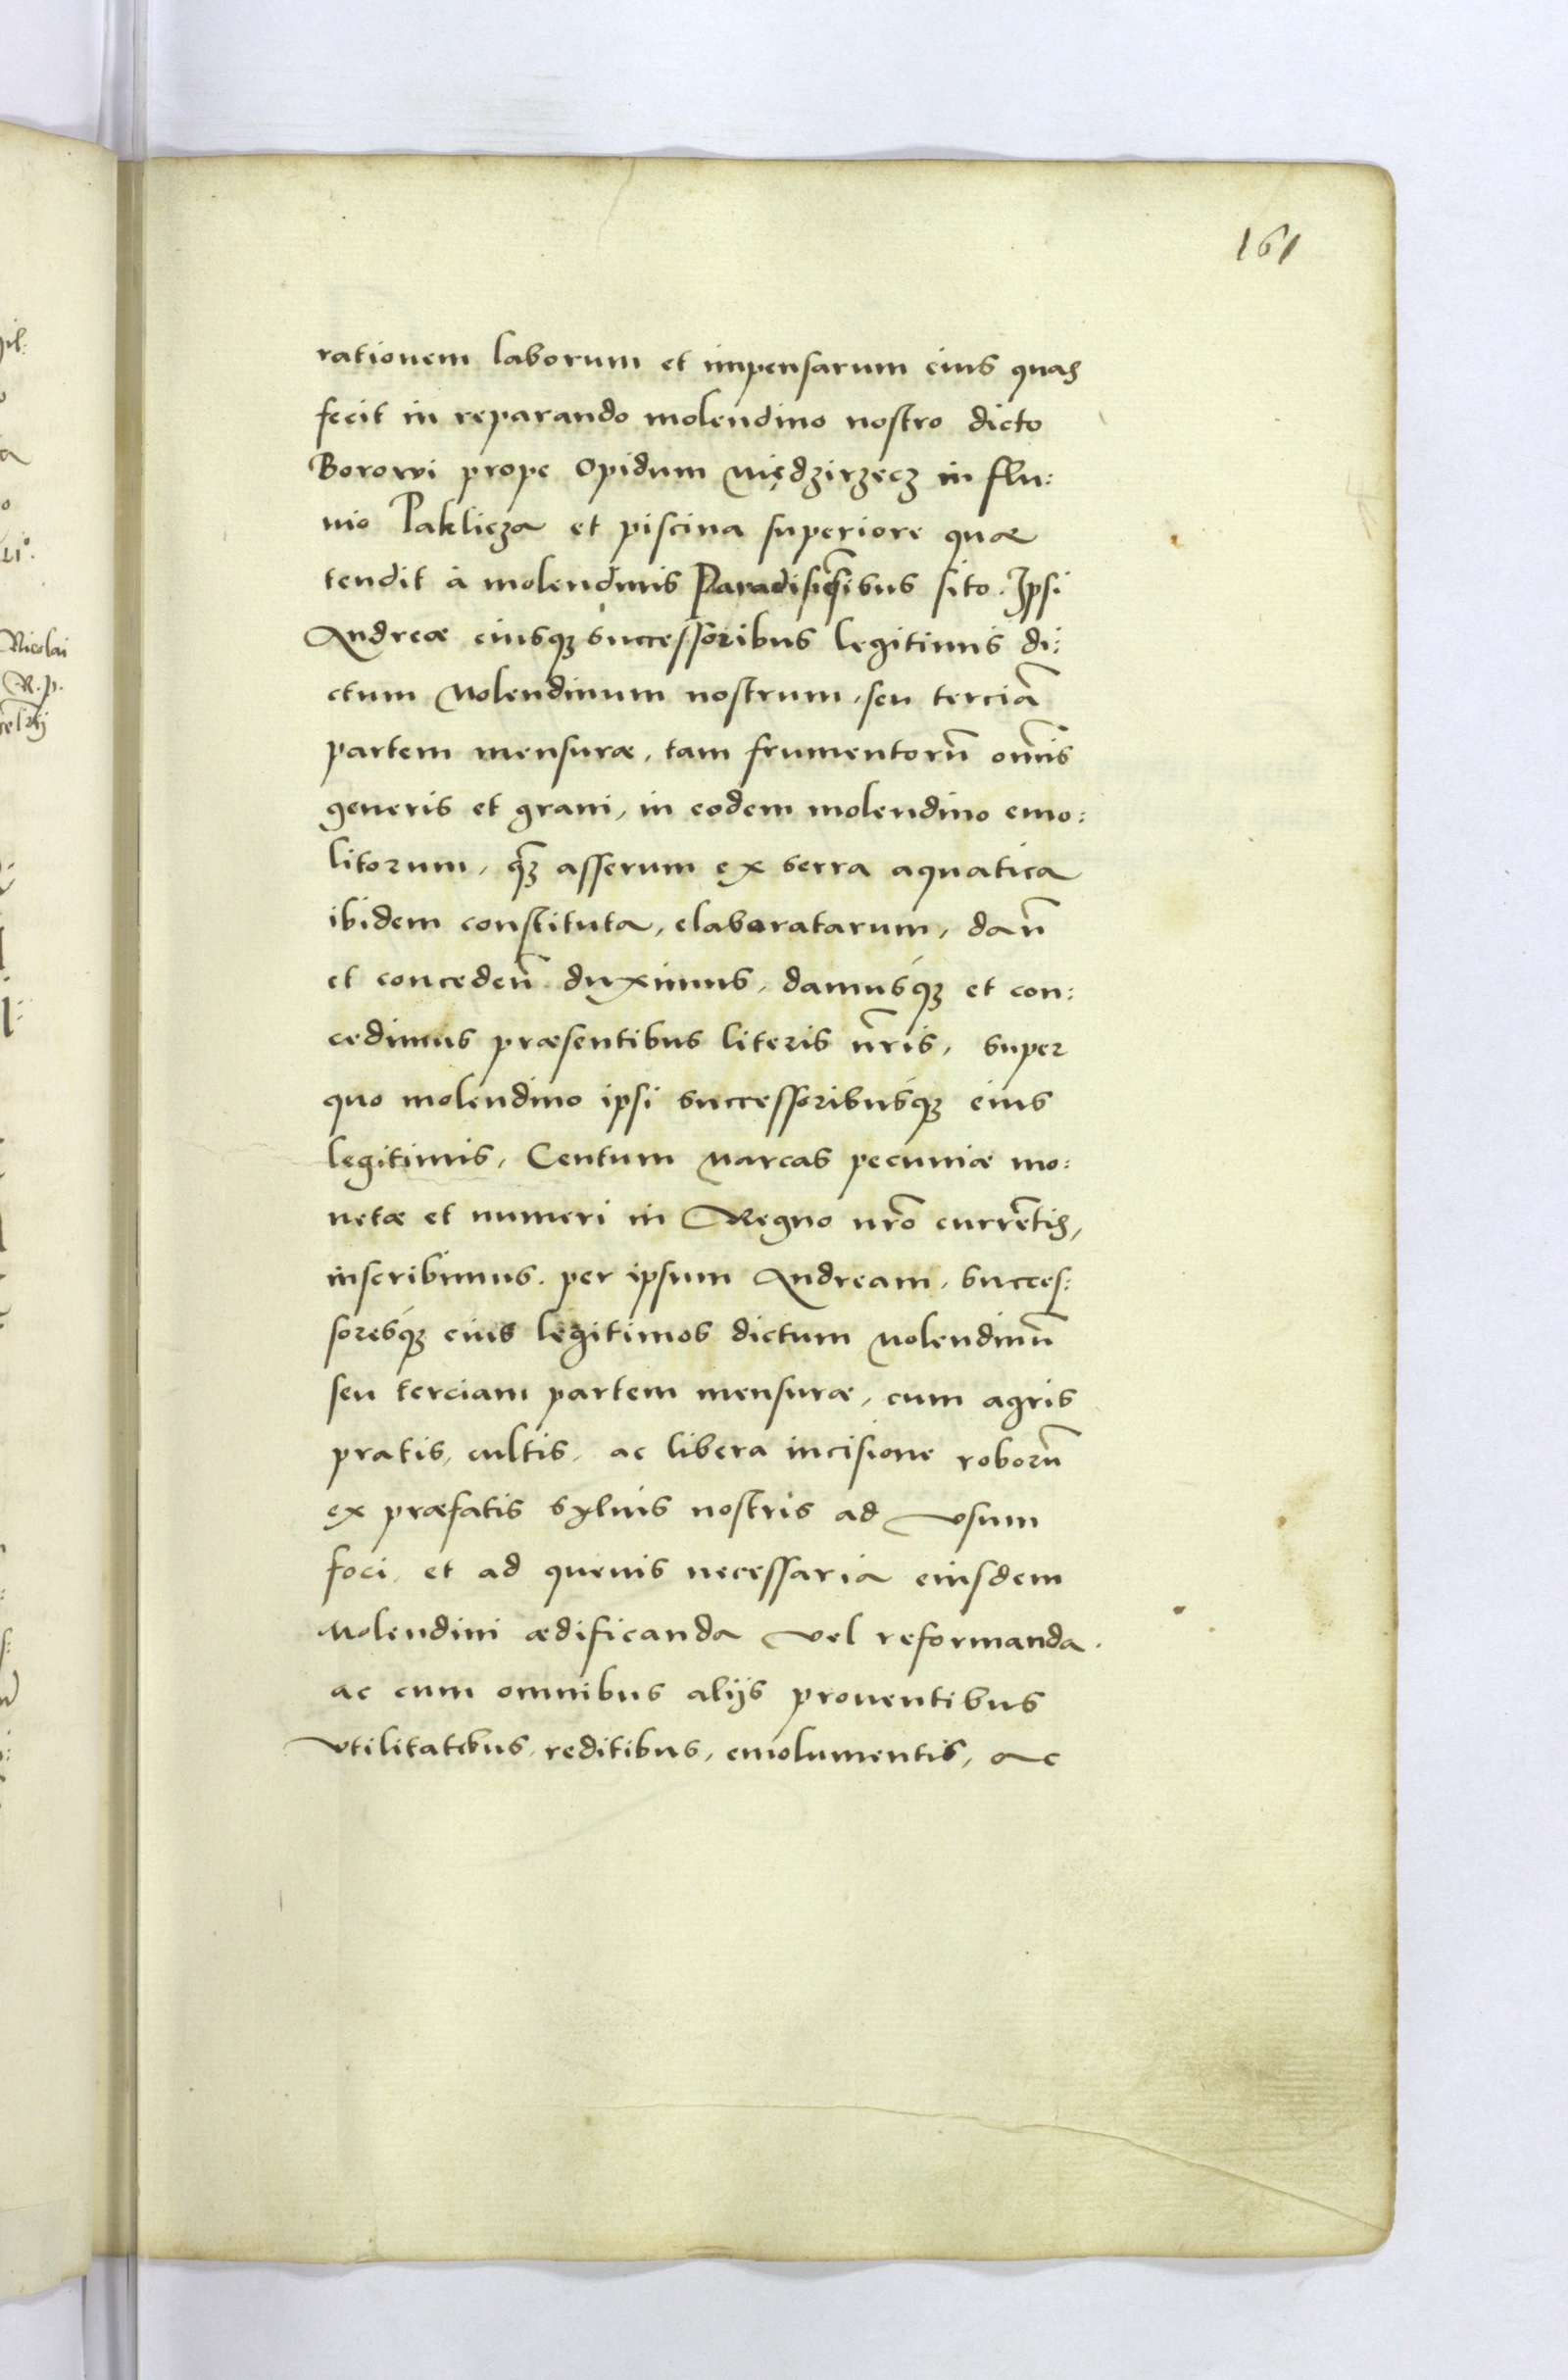 161
rationem laborum et impensarum eius quas
fecit in reparando molendino nostro dicto
Borowi prope Opidum Międzirzecz in flu:
uio Paklicza et piscina superiore quæ
tendit à molendinis Paradisiẽsibus sito. Ipsi
Andreæ eiusqꝫ successoribus legitimis di:
ctum Molendinum nostrum, seu terciã
partem mensuræ, tam frumentorũ om̃is
generis et grani, in eodem molendino emo:
litorum, q̃ꝫ asserum ex serra aquatica
ibidem constituta, elaboratarum, dañ
et conceden̄ duximus, damusqꝫ et con:
cedimus præsentibus literis nr̃is, super
quo molendino ipsi successoribusqꝫ eius
legitimis, Centum Marcas pecuniæ mo:
netæ et numeri in Regno nr̃o currẽtis,
inscribimus. per ipsum Andream, succes:
soresqꝫ eius legitimos dictum Molendinũ
seu terciam partem mensuræ, cum agris
pratis, cultis, ac libera incisione roborũ
ex præfatis syluis nostris ad vsum
foci, et ad queuis necessaria eiusdem
Molendini ædificanda vel reformanda.
ac cum omnibus alijs prouentibus
vtilitatibus, reditibus, emolumentis, ac
Nicolai
R. p.